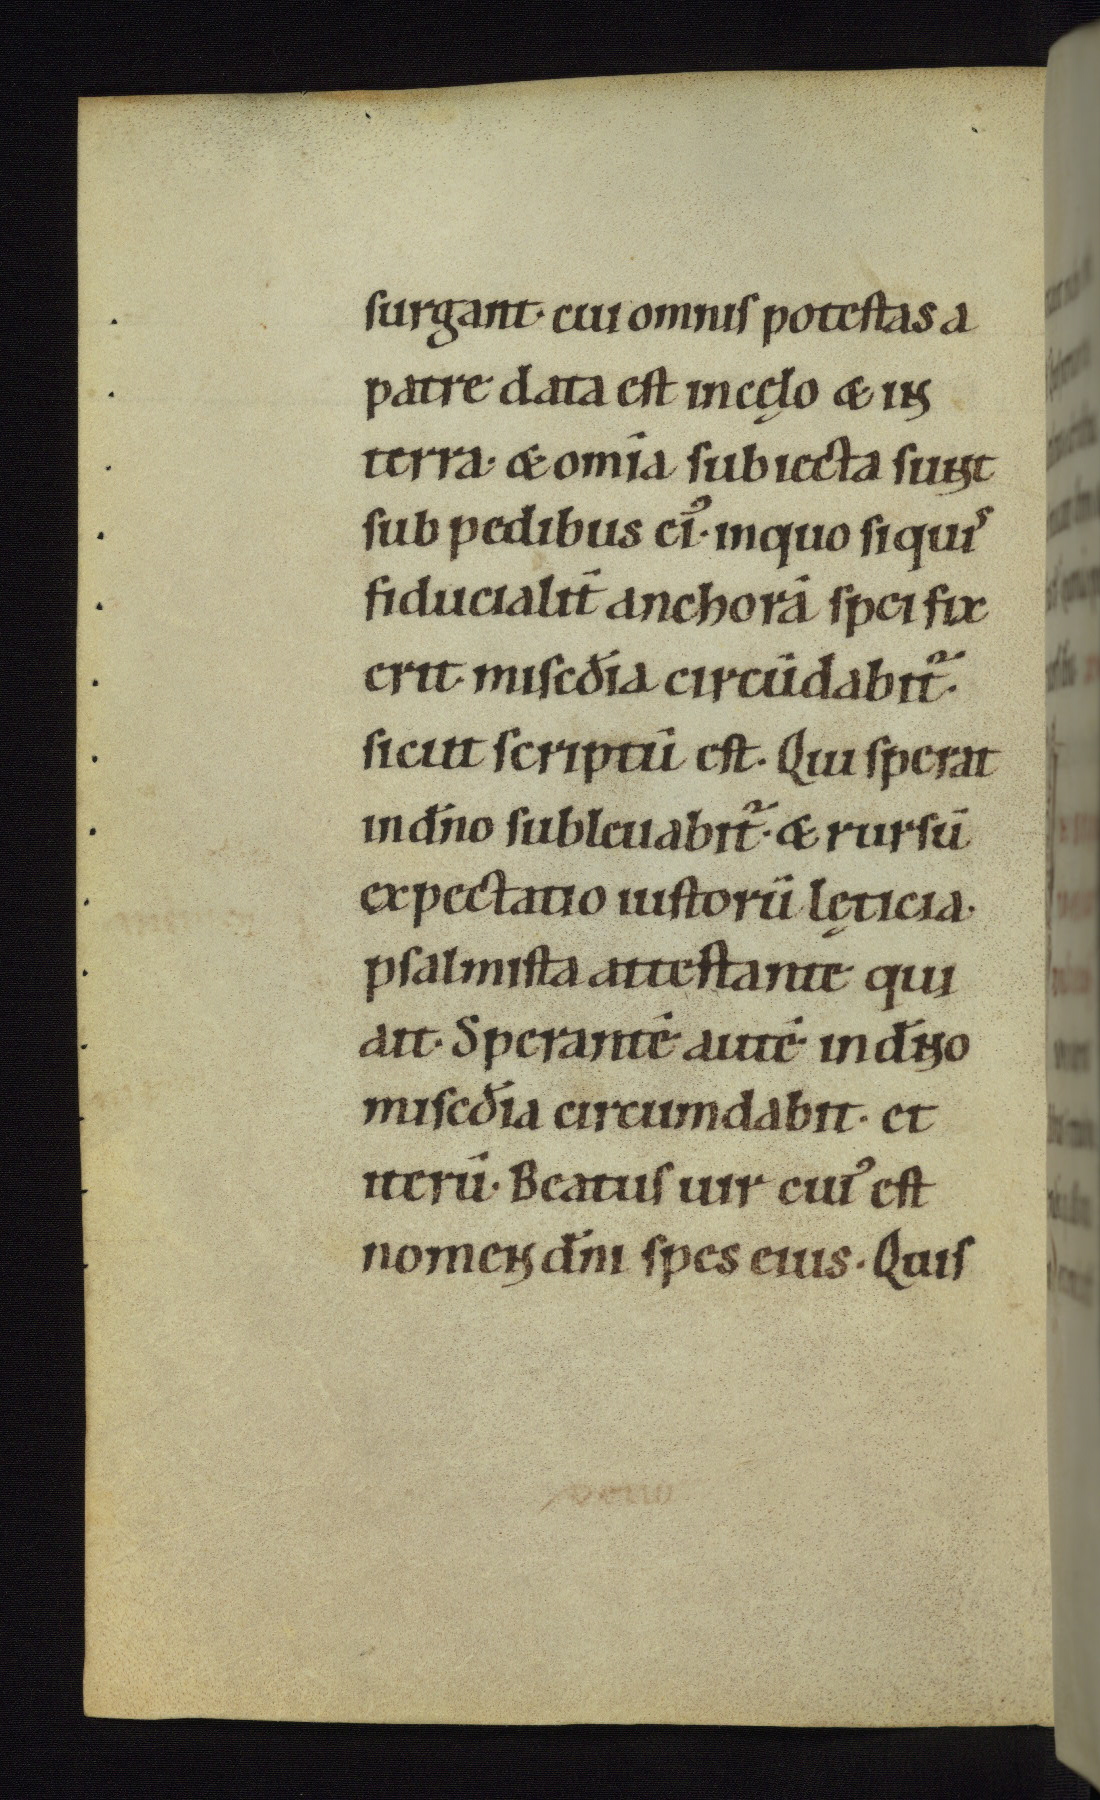 surgant· cui omnis potestas a
patre data est in cęlo & in
terra· & omīa subiecta sunt
sub pedibus ei᷒· inquo siquis
fiducialit̄ anchorā spei fix
erit· misc̄dia circūdabit᷑·
sicut scriptū est· Qui sperat
in dn̄o subleuabit᷑· & rursū
expectatio iustorū lęticia·
psalmista attestante qui
ait· Sperantē autē in dn̄o
misc̄dia circumdabit· et
iterū· Beatus uir cui᷒ est
nomen dn̄i spes eius· Quis